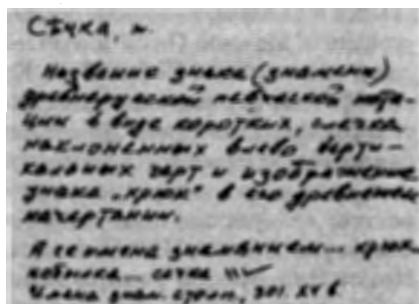 СѢЧКА, ж.
Название знака (знамени)
древнерусской певческой нота-
ции в виде коротких, слегка
наклоненных влево верти-
кальных черт и изображение
знака „крюк" в его древнейшем
начертании.
А се имена знамением... крюк,
кобылка... сечка
знам. столп., XV в